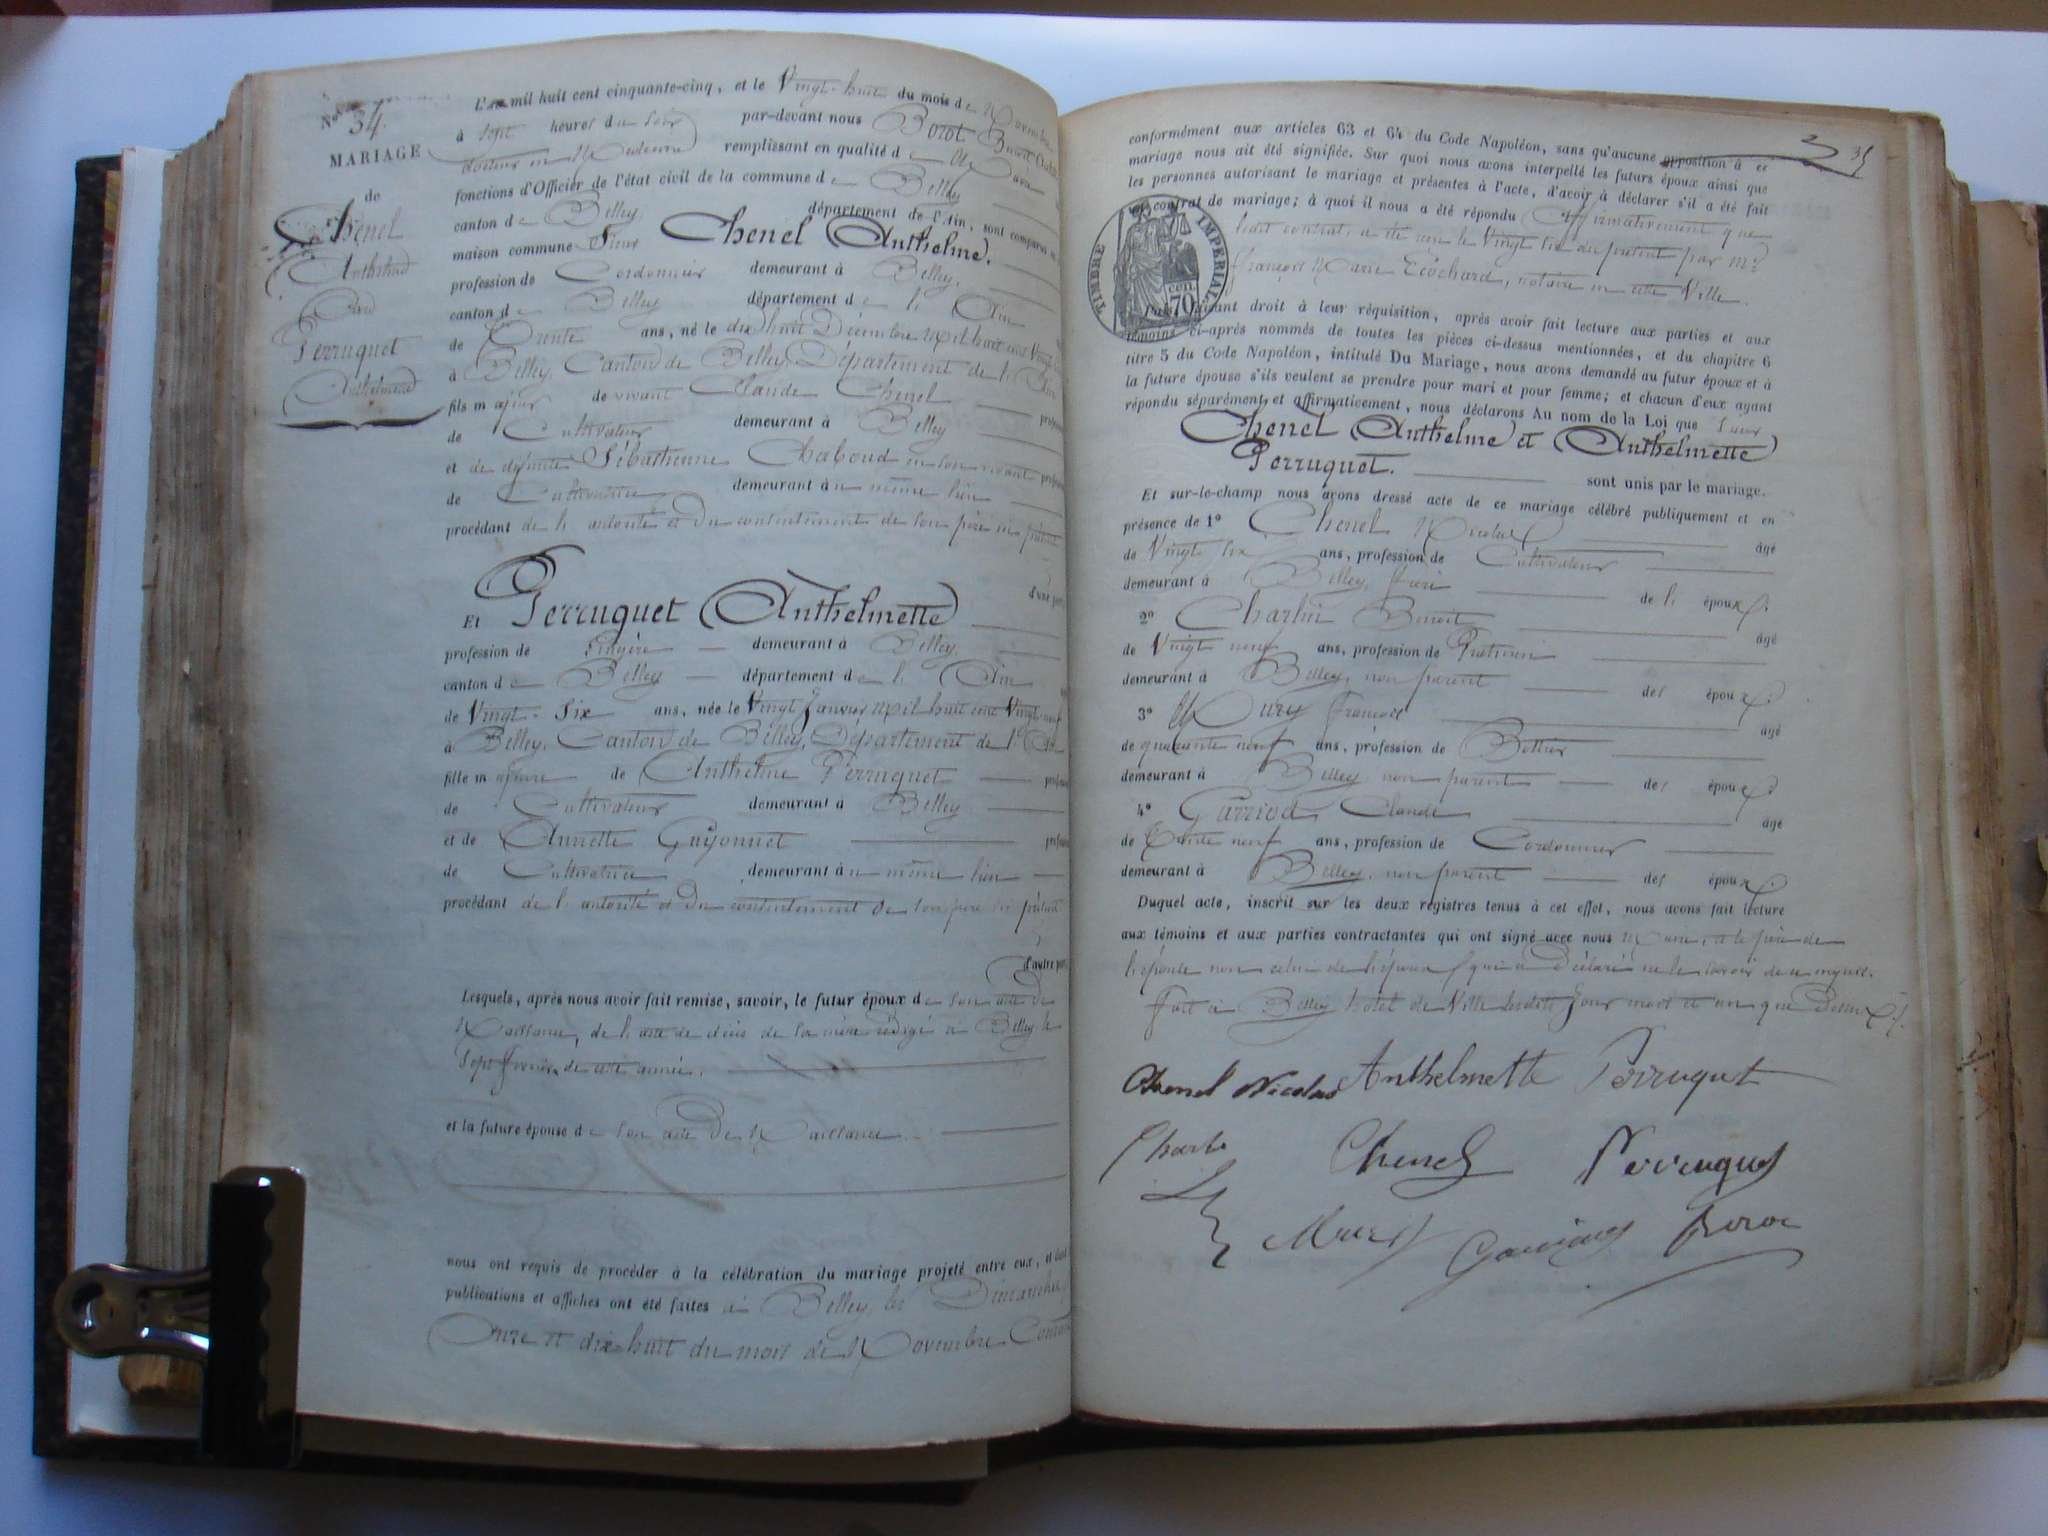 No 34.
MARIAGE
de
Chenel
Anthelme
Perruquet
Anthelmette
L'an mil huit cent cinquante-cinq, et le Vingt-huit du mois de Novembre
à sept heures du soir par-devant nous Borot Benoit
docteur en Medecine remplissant en qualité de Maire
fonctions d'Officier de l'état civil de la commune de Belley
canton de Belley département de l'Ain, sont comparus en
maison commune Sieur Chenel Anthelme.
profession de Cordonnier demeurant à Belley,
canton de Belley département de l'Ain
de Trente ans, né le dix huit Décembre Mil huit cent Vingt
à Belley, Canton de Belley, Département de l'Ain
fils majeur de vivant Claude Chenel
de Cultivateur demeurant à Belley
et de défunte Sébastienne Chaboud en son vivant profession
de Cultivatrice demeurant au même lieu
procédant de l'autorité et du consentement de son père ici présent
d'une part
Et Perruquet Anthelmette
profession de Lingère demeurant à Belley,
canton de Belley département de l'Ain
de Vingt-Six ans, née le Vingt Janvier Mil huit cent Vingt neuf
à Belley, Canton de Belley, Département de l'Ain
fille majeure de Anthelme Perruquet
de Cultivateur demeurant à Belley
et de Annette Guyonnet
de Cultivatrice demeurant au même lieu
procédant de l'autorité et du consentement de son père ici présent
d'autre part
Lesquels, après nous avoir fait remise, savoir, le futur époux de son acte de
Naissance, de l'acte de décès de sa mère rédigé à Belley le
Sept février de cette année.
et la future épouse de son acte de Naissance.
nous ont requis de procéder à la célébration du mariage projeté entre eux, et dont
publications et affiches ont été faites à Belley, les Dimanches
Onze et dix-huit du mois de Novembre Courant
35
conformément aux articles 63 et 64 du Code Napoléon, sans qu'aucune opposition à ce
mariage nous ait été signifiée. Sur quoi nous avons interpellé les futurs époux ainsi que
les personnes autorisant le mariage et présentes à l'acte, d'avoir à déclarer s'il a été fait
un contrat de mariage; à quoi il nous a été répondu Affirmativement que
ledit contrat a été reçu le Vingt six du présent par Me
François Marie Récochard, notaire en cette Ville.
TIMBRE IMPERIAL
CEN. 70
Puis faisant droit à leur réquisition, après avoir fait lecture aux parties et aux
témoins ci-après nommés de toutes les pièces ci-dessus mentionnées, et du chapitre 6
titre 5 du Code Napoléon, intitulé Du Mariage, nous avons demandé au futur époux et à
la future épouse s'ils veulent se prendre pour mari et pour femme; et chacun d'eux ayant
répondu séparément et affirmativement, nous déclarons Au nom de la Loi que Sieur
Chenel Anthelme et Anthelmette
Perruquet. sont unis par le mariage.
Et sur-le-champ nous avons dressé acte de ce mariage célébré publiquement et en
présence de 1º Chenel Nicolas âgé
de Vingt six ans, profession de Cultivateur
demeurant à Belley, frère de l'époux.
2º Charlin Benoit âgé
de Vingt neuf ans, profession de Praticien
demeurant à Belley, non parent des époux.
3º Mury François âgé
de quarante neuf ans, profession de Bottier
demeurant à Belley non parent des époux.
4º Garriod Claude âgé
de Trente neuf ans, profession de Cordonnier
demeurant à Belley, non parent des époux.
Duquel acte, inscrit sur les deux registres tenus à cet effet, nous avons fait lecture
aux témoins et aux parties contractantes qui ont signé avec nous Maire, et le père de
l'épouse non celui de l'époux qui a déclaré ne le savoir de ce enquis.
Fait à Belley hôtel de Ville lesdits Jour mois et an que Dessus.
Chenel Nicolas Anthelmette Perruquet
Charlin Chenel Perruquet
Mury Garriod Borot